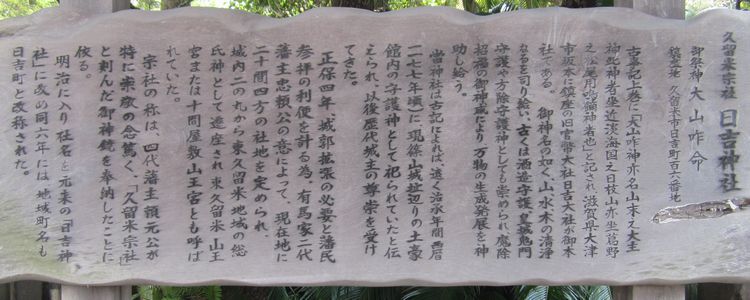 久留米宗社 日吉神社
御祭神 大山咋命
鎮座地 久留米市日吉町百六番地
古事記上巻に「大山咋神亦名山末之大主
神此神者坐近淡海国之日枝山亦坐葛野
之松尾用鳴鏑神者也」と記され、滋賀県大津
市坂本に鎮座の旧官幣大社日吉大社が御本
社である。 御神名の如く、山水木の清浄
なるを司り給い、古くは酒造守護、皇城鬼門
守護や方除守護神としても崇められ、魔除
招福の御神威により万物の生成発展を神
助し給う。
當神社は古記によれば、遠く治承年間西暦
一一七七年頃に、現篠山城址辺りの土豪
館内の守護神として祀られていたと伝
えられ、以後歴代城主の尊崇を受け
てきた。
正保四年、城郭拡張の必要と藩民
参拝の利便を計る為、有馬家二代
藩主忠頼公の意によって、現在地に
二十間四方の社地を定められ、
城内二の丸から東久留米地域の総
氏神として遷座され、東久留米 山王
宮または十間屋敷山王宮とも呼ば
れていた。
宗社の称は、四代藩主頼元公が
特に崇敬の念篤く、「久留米宗社」
と刻んだ御神鏡を奉納したことに
依る。
明治に入り社名を元来の「日吉神
社」に改め同六年には、地域町名も
日吉町と改称された。